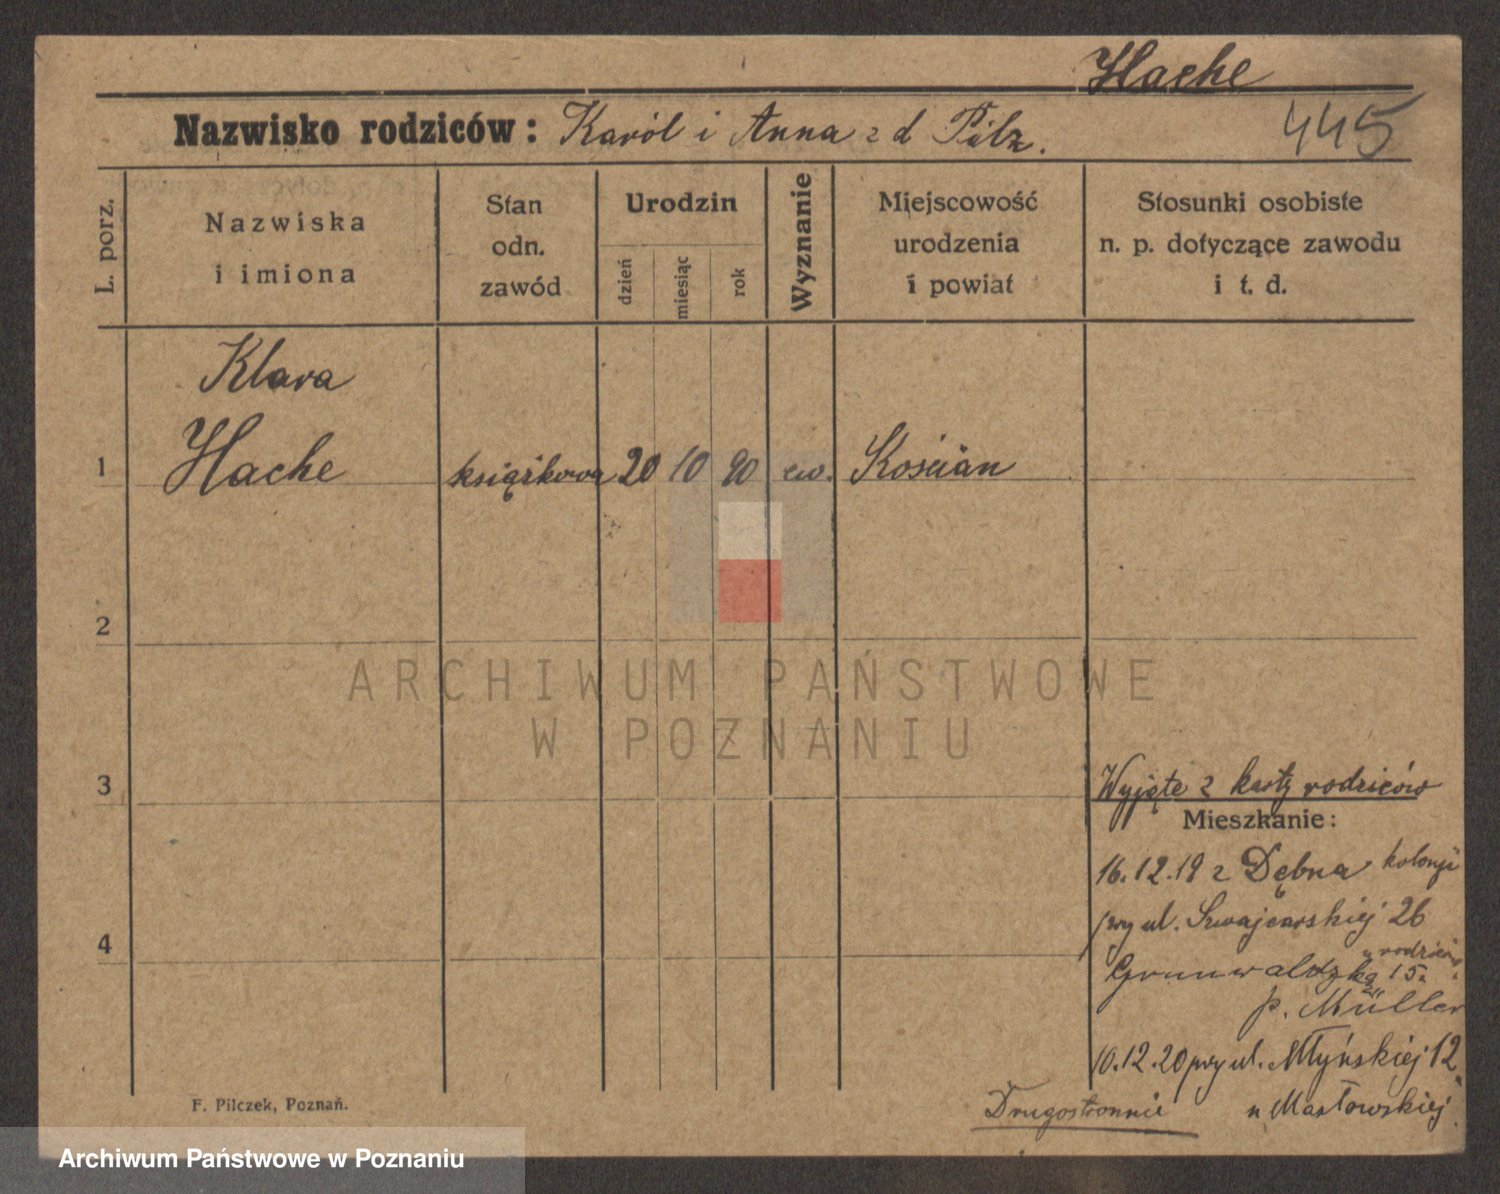 Hache
445
Nazwisko rodziców: Karól i Anna z d Pilz.
L. porz.
Nazwiska
i imiona
Stan
odn.
zawód
Urodzin
dzień
miesiąc
rok
Wyznanie
Miejscowość
urodzenia
i powiat
Stosunki osobiste
n. p. dotyczące zawodu
i t. d.
Klara
1 Hache książkowa 20 10 90 ew. Kościan
2
ARCHIWUM PAŃSTWOWE
W POZNANIU
3
Wyjęte z karty rodziców
Mieszkanie:
16.12.19 z Dębna kolonji
przy ul. Szwajcarskiej 26
4
u rodziców
Grunwaldzka 15.
p. Müller
10.12.20 przy ul. Młyńskiej 12
u Masłowskiej.
Drugostronnie
F. Pilczek, Poznań.
Archiwum Państwowe w Poznaniu